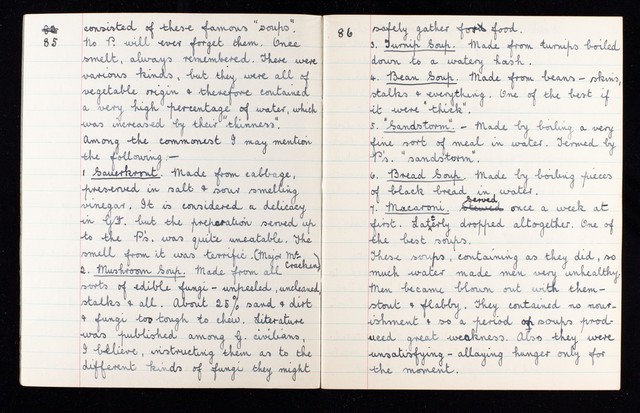 85
consisted of these famous "soups".
No P. will ever forget them. Once
smelt, always remembered. There were
various kinds, but they were all of
vegetable origin & therefore contained
a very high percentage of water, which
was increased by their "thinness".
Among the commonest I may mention
the following :—
1 Sauerkraut. Made from cabbage,
preserved in salt & sour smelling
vinegar. It is considered a delicacy
in GY. but the preparation served up
to the P's. was quite uneatable. The
smell from it was terrific. (Major McCracken)
2. Mushroom Soup. Made from all
sorts of edible fungi - unpeeled, uncleaned,
stalks & all. About 25% sand & dirt
& fungi too tough to chew. Literature
was published among G. civilians,
I believe, instructing them as to the
different kinds of fungi they might
86
safely gather food.
3. Turnip Soup. Made from turnips boiled
down to a watery hash.
4. Bean Soup. Made from beans - skins,
stalks & everything. One of the best if
it were "thick".
5. "Sandstorm". - Made by boiling a very
fine sort of meal in water. Termed by
P's. "sandstorm".
6. Bread Soup. Made by boiling pieces
of black bread in water.
7. Macaroni. served once a week at
first. Laterly dropped altogether. One of
the best soups.
These soups, containing as they did, so
much water made men very unhealthy.
Men became blown out with them -
stout & flabby. They contained no nour-
ishment & so a period of soups prod-
uced great weakness. Also they were
unsatisfying - allaying hunger only for
the moment.